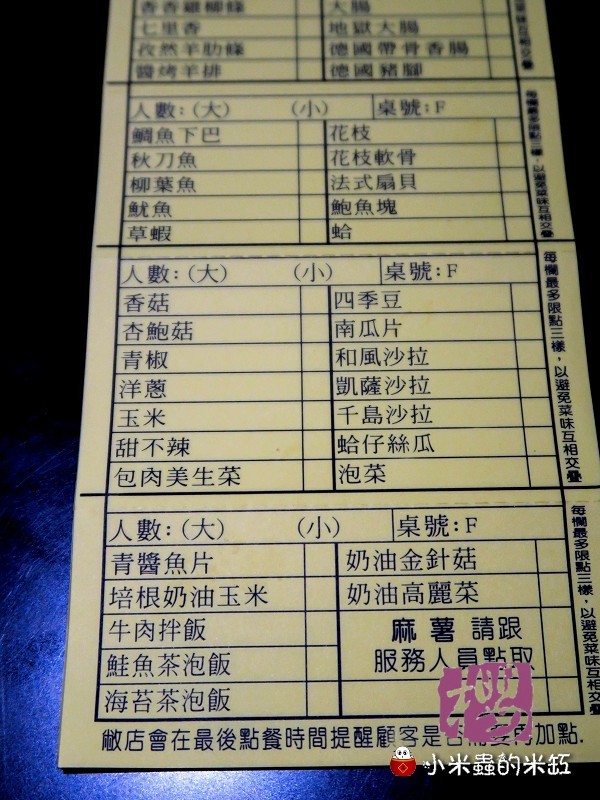 香香雞柳條 大腸
七里香 地獄大腸
孜然羊肋條 德國帶骨香腸
醬烤羊排 德國豬腳
人數:(大) (小) 桌號:F
鯛魚下巴 花枝
秋刀魚 花枝軟骨
柳葉魚 法式扇貝
魷魚 鮑魚塊
草蝦 蛤
每欄最多限點三樣,以避免菜味互相交疊
人數:(大) (小) 桌號:F
香菇 四季豆
杏鮑菇 南瓜片
青椒 和風沙拉
洋蔥 凱薩沙拉
玉米 千島沙拉
甜不辣 蛤仔絲瓜
包肉美生菜 泡菜
每欄最多限點三樣,以避免菜味互相交疊
人數:(大) (小) 桌號:F
青醬魚片 奶油金針菇
培根奶油玉米 奶油高麗菜
牛肉拌飯 麻薯 請跟
鮭魚茶泡飯 服務人員點取
海苔茶泡飯
每欄最多限點三樣,以避免菜味互相交疊
敝店會在最後點餐時間提醒顧客是否需要再加點.
小米蟲的米缸